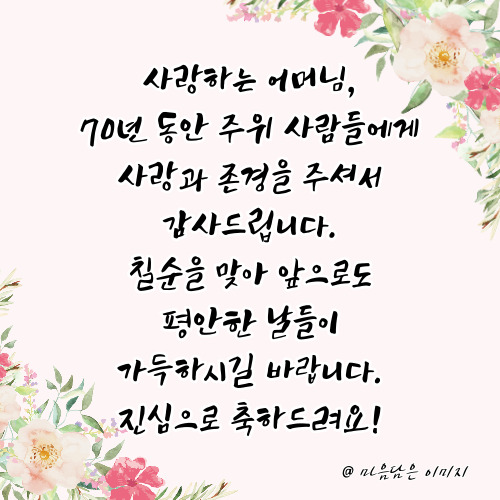 사랑하는 어머님,
70년 동안 주위 사람들에게
사랑과 존경을 주셔서
감사드립니다.
칠순을 맞아 앞으로도
평안한 날들이
가득하시길 바랍니다.
진심으로 축하드려요!
@ 마음담은 이미지